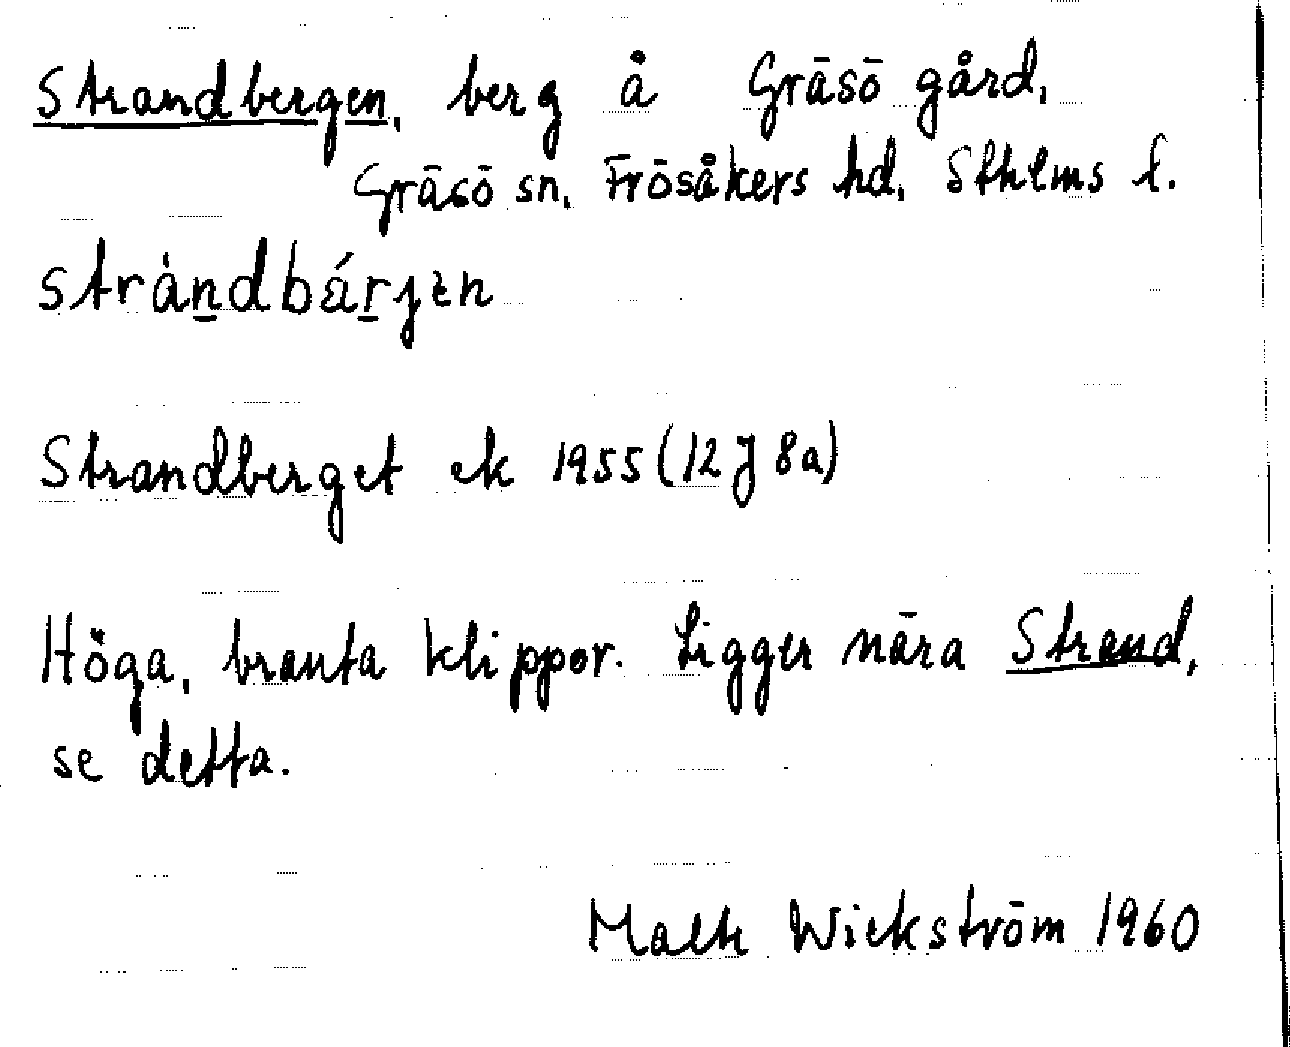 Strandbergen, berg å Gräsö gård,
Gräsö sn, Frösåkers hd, Sthlms l.
stràndbárjen
Strandberget ek 1955 (12 J 8a)
Höga, branta klippor. Ligger nära Strand,
se detta.
Wickström 1960